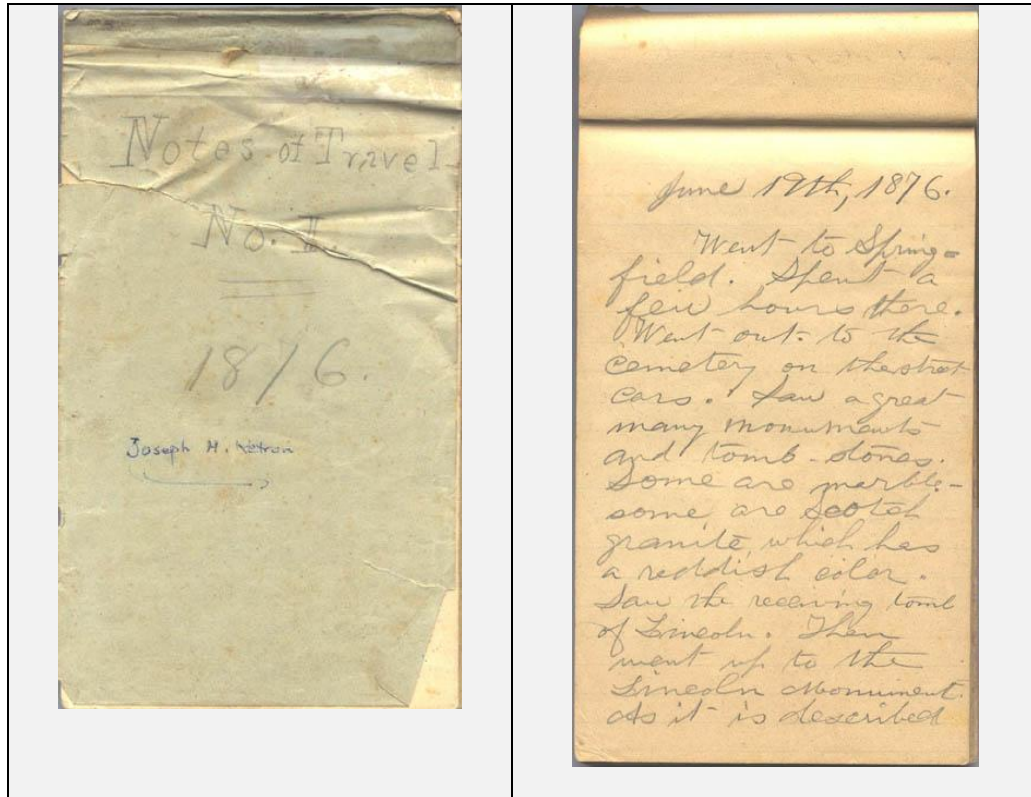 Notes of Travel
No. I.
1876.
Joseph H. Ketron
June 19th, 1876.
Went to Spring=
field. Spent a
few hours there.
Went out to the
cemetery on the street
cars. Saw a great
many monuments
and tomb-stones.
Some are marble-
some are Scotch
granite, which has
a reddish color.
Saw the receiving tomb
of Lincoln. Then
went up to the
Lincoln Monument.
As it is described